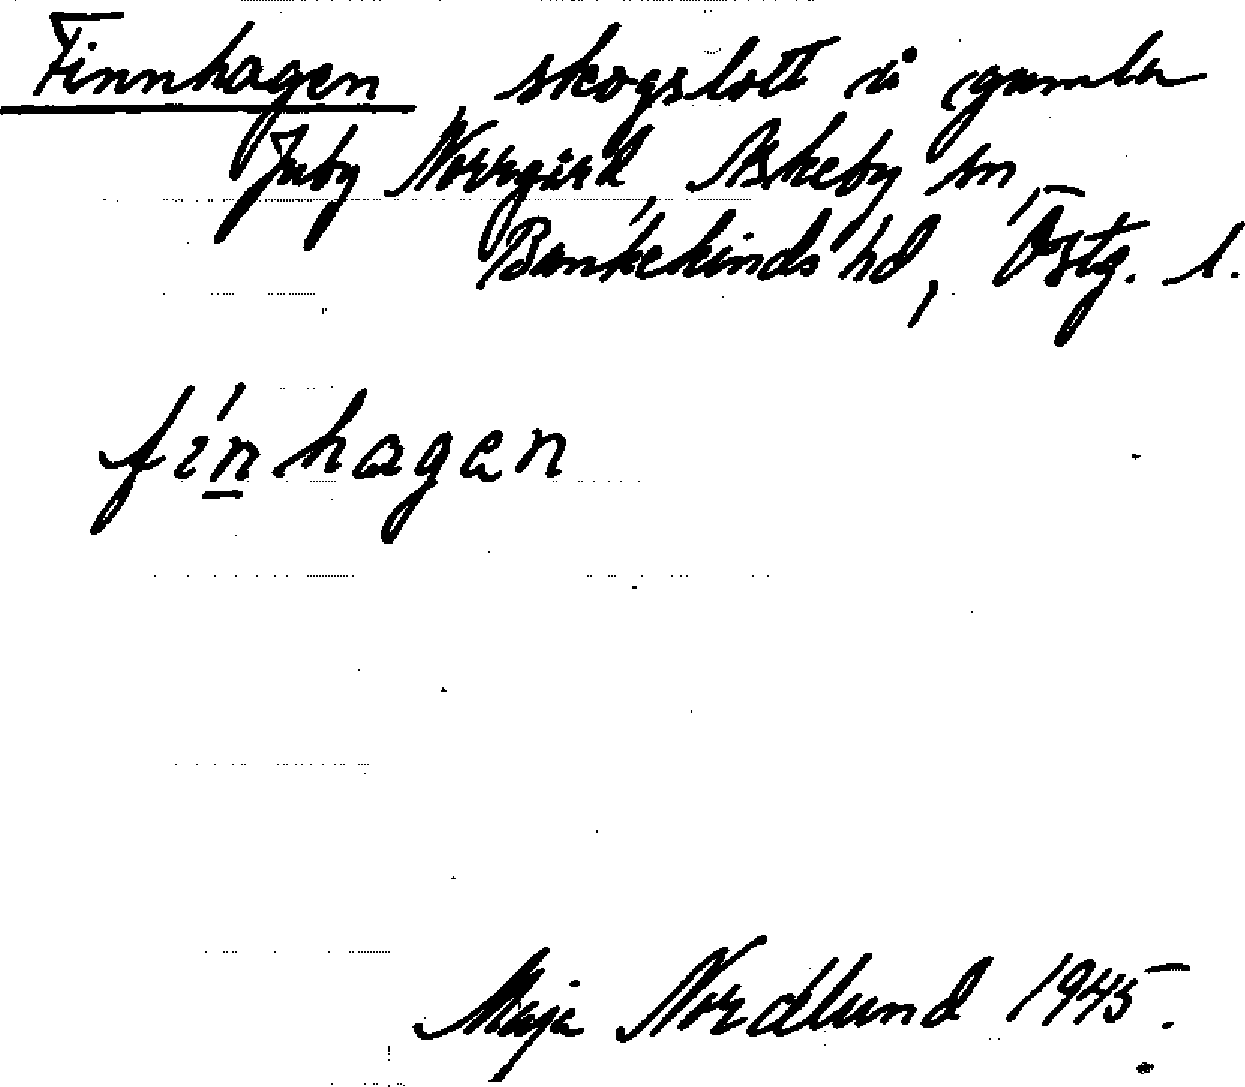 Finnhagen, skogslott å gamla
Juby Norrgård, Askeby sn,
Bankekinds hd, Östg. l.
fin̲hagen
Maja Nordlund 1945.